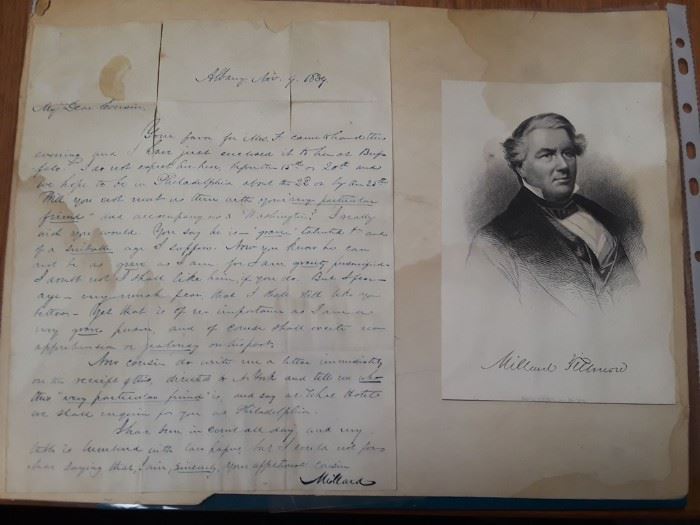 Albany Nov. 9. 1839.
My Dear Cousin,
Your favor for Mrs. F. came to hand this
evening and I have just enclosed it to her at Buf-
falo. I do not expect her here before the 15th or 20th and
we hope to be in Philadelphia about the 22 or by the 25th
Will you not meet us there with your "very particular
friend" and accompany us to Washington? I really
wish you would. You say he is "grave" talented & and
of a suitable age I suppose. Now you know he can
not be as grave as I am for I am gravity personified
I doubt not I shall like him, if you do. But I fear -
aye - very much fear, that I shall still like you
better - Yet that is of no importance as I am a
very grave person, and of course shall excite no
apprehension or jealousy on his part.
Now cousin do write me a letter immediately
on the receipt of this, directed to N. York and tell me who
this "very particular friend" is, and say at what Hotels
we shall inquire for you at Philadelphia.
I have been in court all day and my
table is lumbered with law papers, but I could not for-
bear saying that, I am, sincerely, your affectionate cousin
Millard
Millard Fillmore